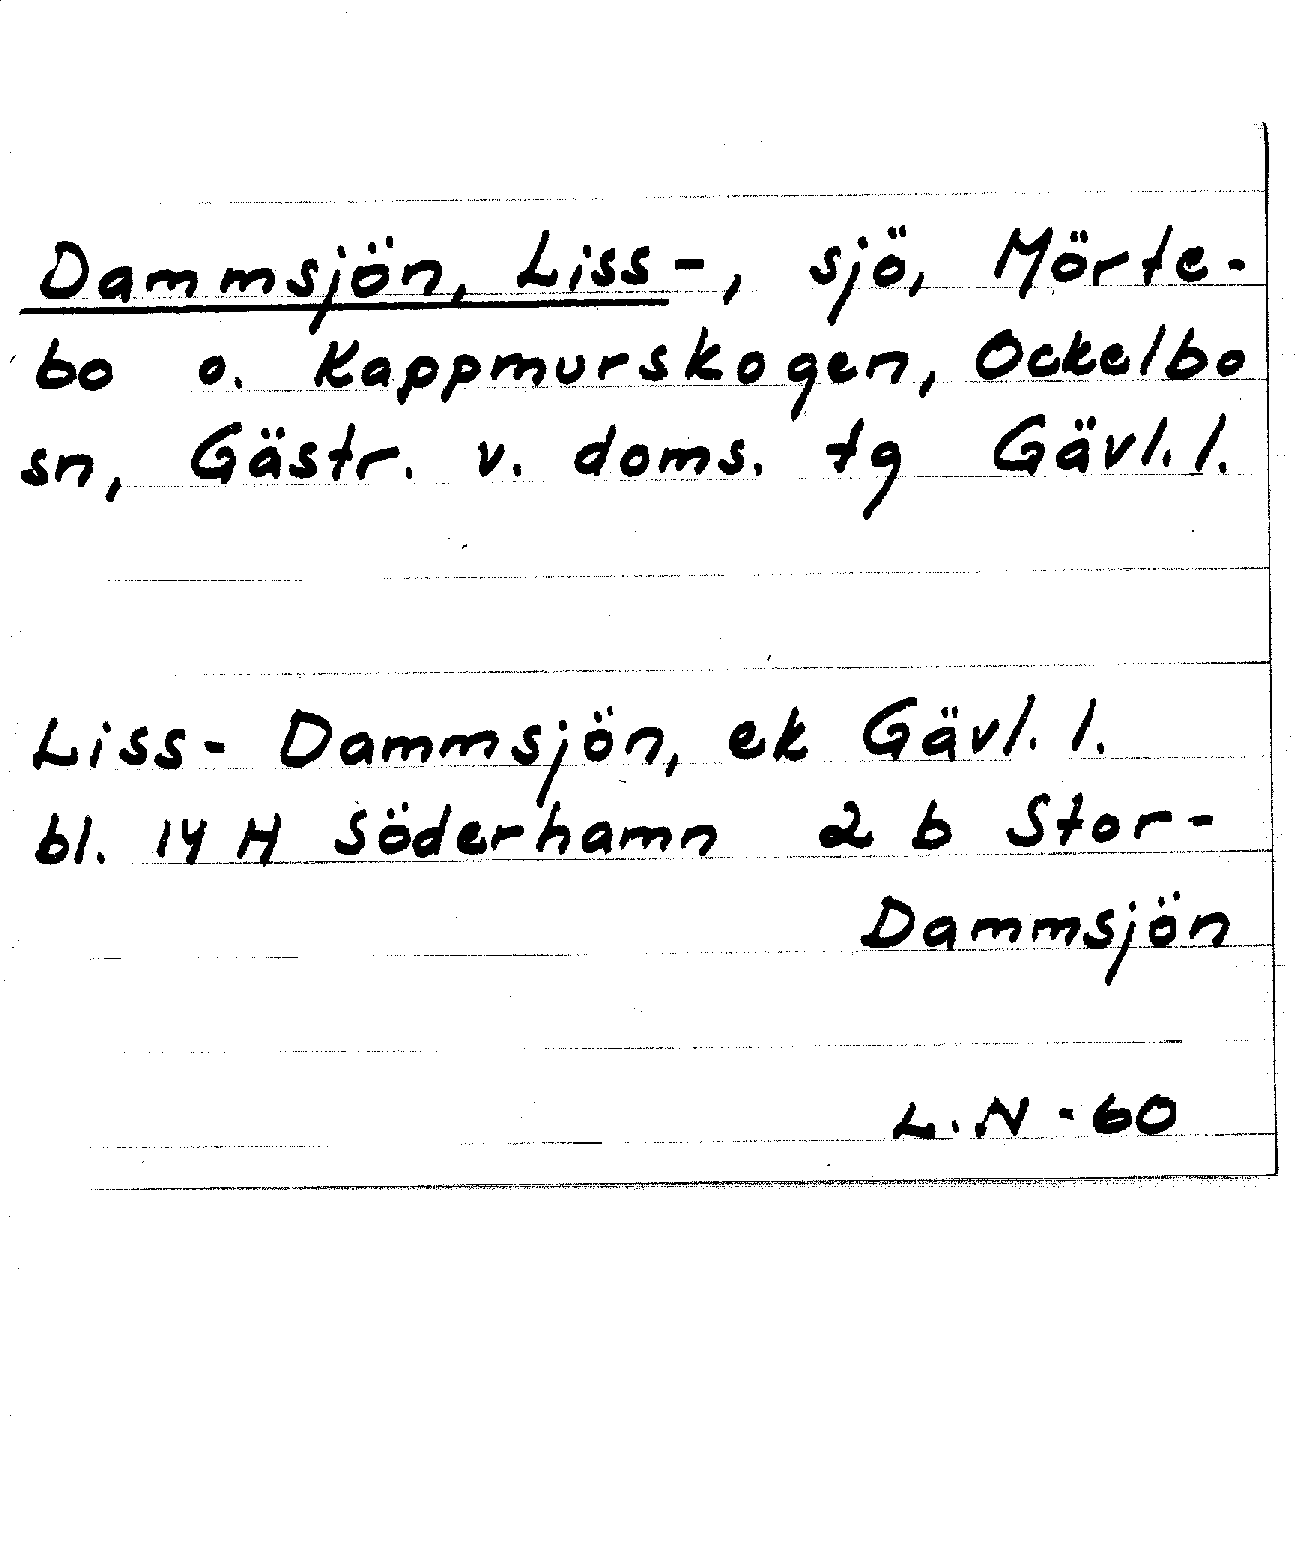 Dammsjön, Liss-, sjö, Mörte-
bo o. Kappmurskogen, Ockelbo
sn, Gästr. v. doms. tg Gävl. l.
Liss- Dammsjön, ek Gävl. l.
bl. 14 H Söderhamn 2 b Stor-
Dammsjön
L.N - 60